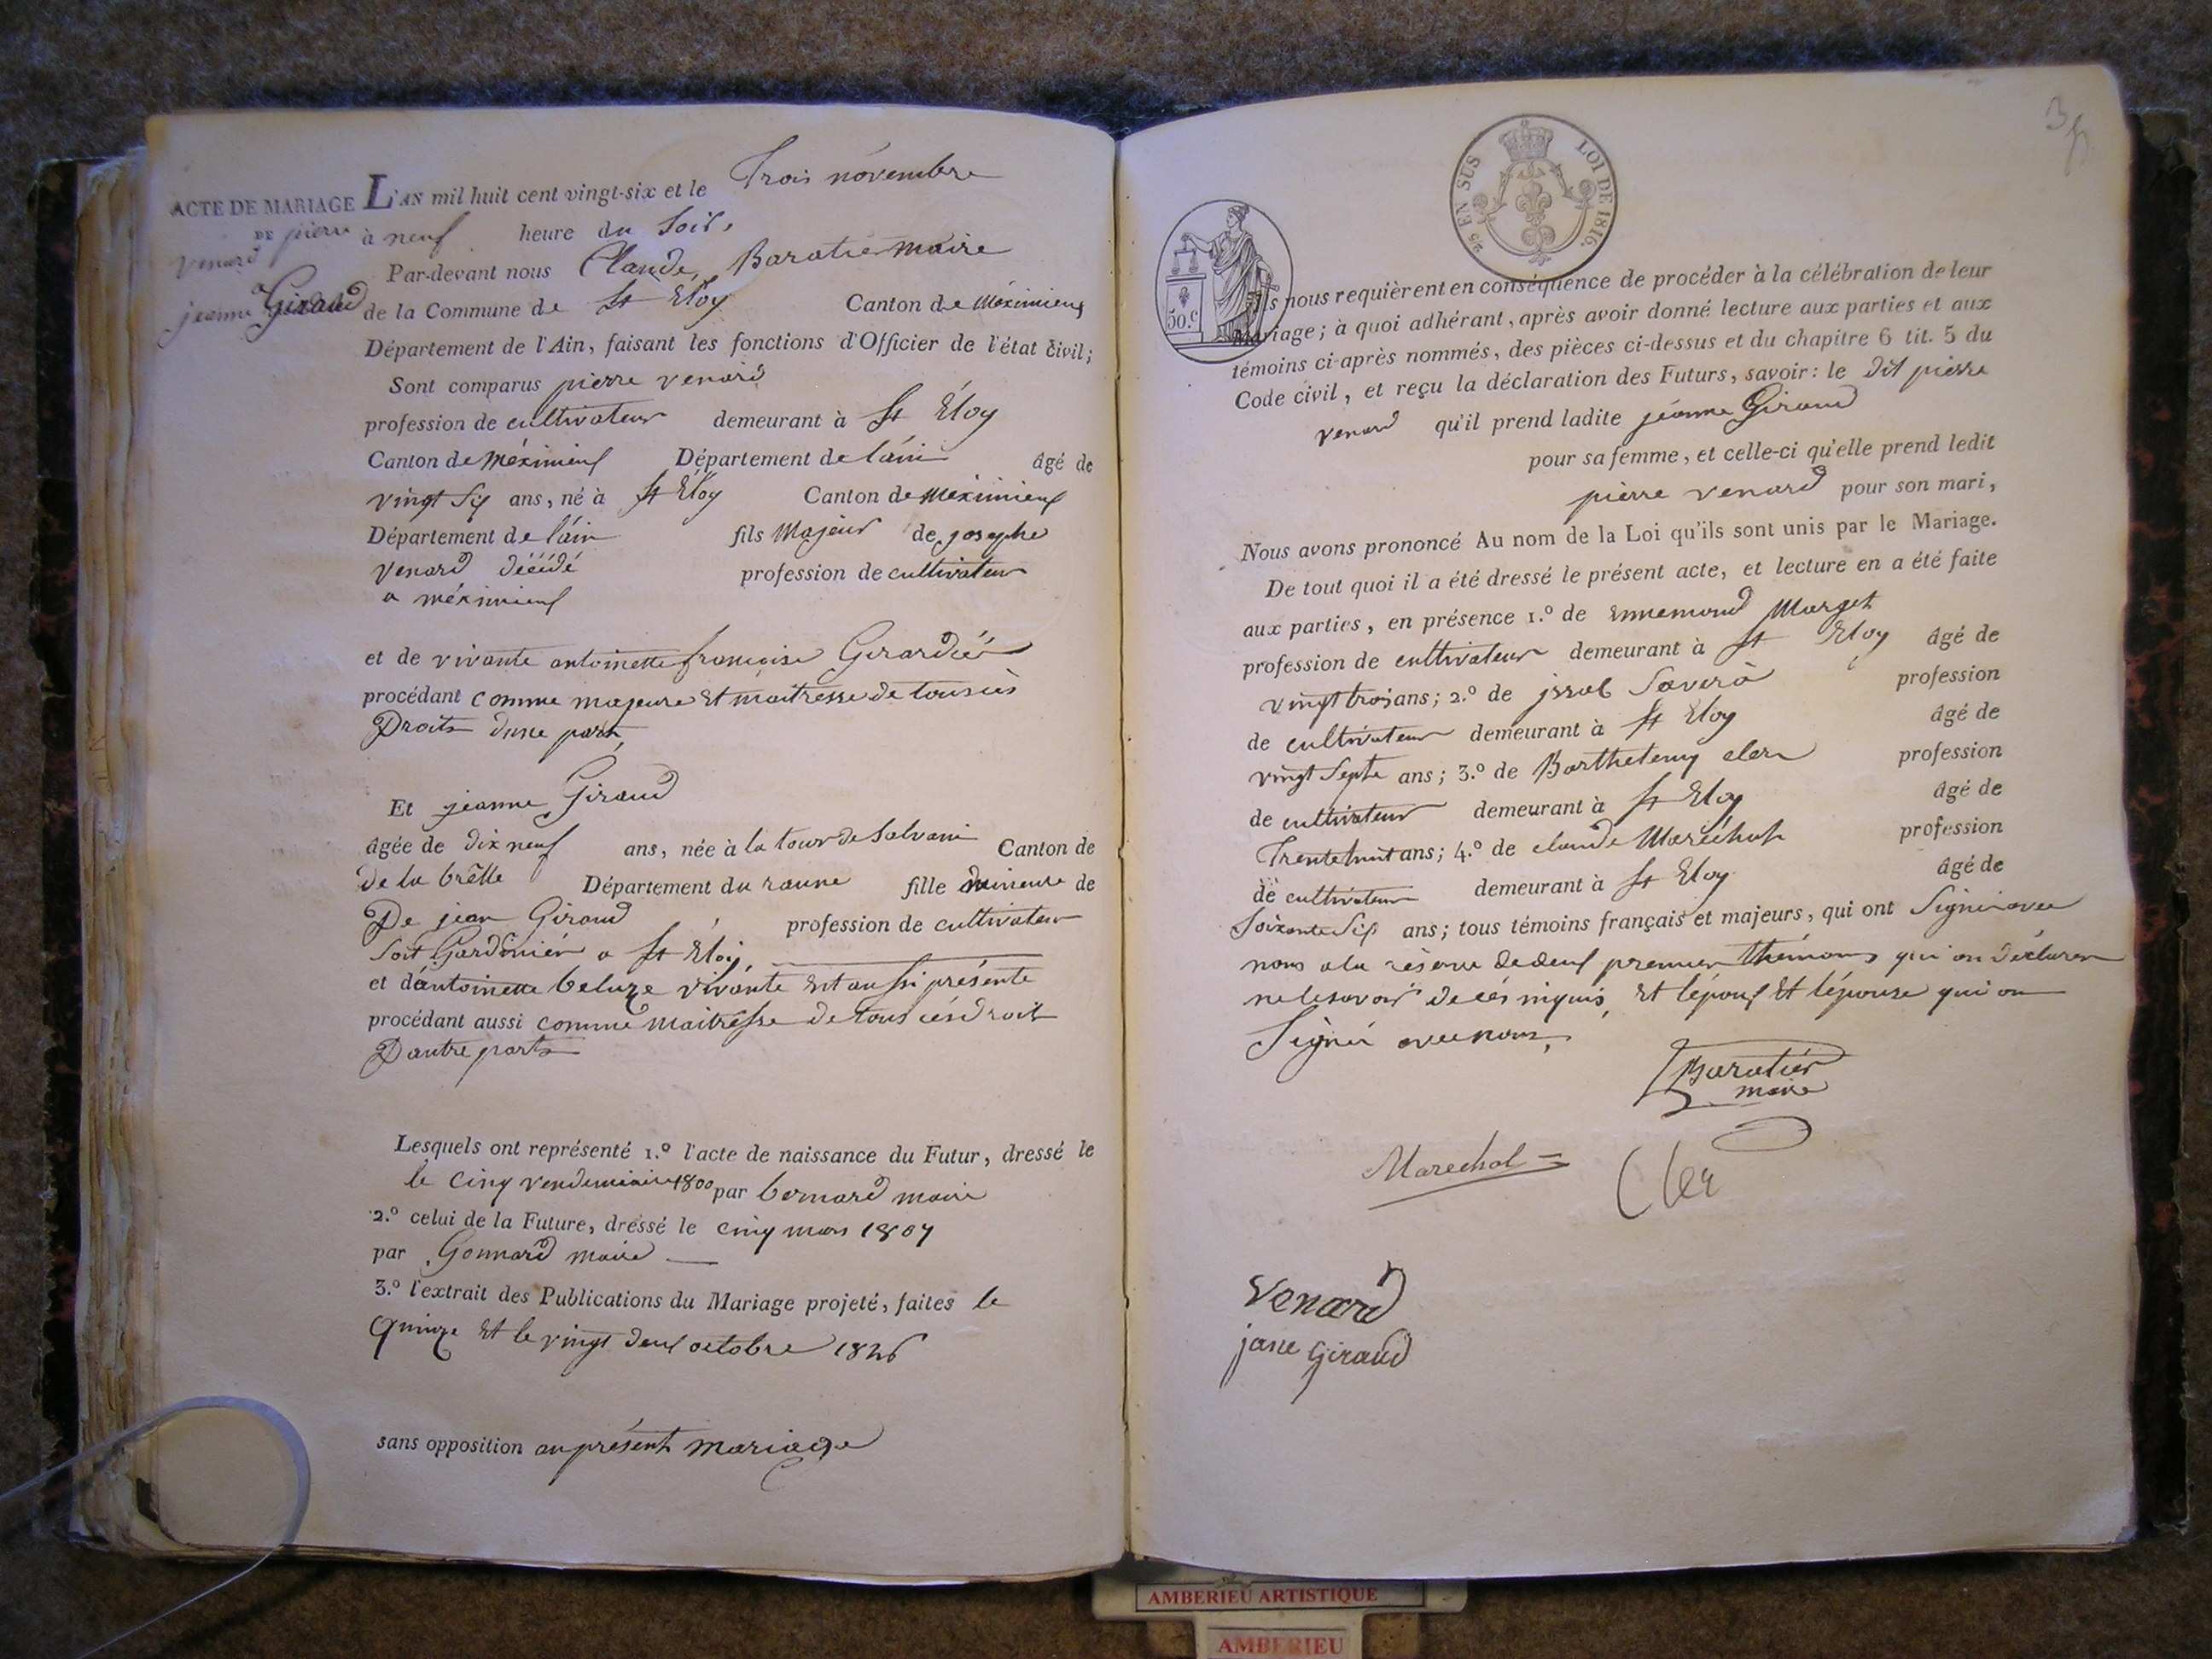 ACTE DE MARIAGE
DE pierre
venard
a
jeanne Giraud
L'AN mil huit cent vingt-six et le Trois novembre
à neuf heure du Soir,
Par-devant nous Claude Baratier maire
de la Commune de St Eloy Canton de Méximieux
Département de l'Ain, faisant les fonctions d'Officier de l'état civil;
Sont comparus pierre venard
profession de cultivateur demeurant à St Eloy
Canton de Méximieux Département de láin âgé de
vingt Six ans, né à St Eloy Canton de Méximieux
Département de láin fils Majeur de josephe
Venard décédé profession de cultivateur
a méximieux
et de vivante antoinette françoise Girardié
procédant comme majeure et maitresse de tous cès
Droits dune part,
Et jeanne Giraud
âgée de dix neuf ans, née à la tour de Salvani Canton de
De la brêlle Département du raune fille mineure de
De jean Giraud profession de cultivateur
Soit Gardinién a St Eloy,
et dántoinette beluze vivante Et aussi présente
procédant aussi comme maitrésse de tous cés droit
Dautre parts
Lesquels ont représenté 1.º l'acte de naissance du Futur, dressé le
le Cinq vendemiaire 1800 par bernard maire
2.º celui de la Future, dressé le cinq mars 1807
par Gonnard maire
3.º l'extrait des Publications du Mariage projeté, faites le
quinze Et le vingt deux octobre 1826
sans opposition au présent mariage
3
2/5 EN SUS LOI DE 1816.
50.c
Ils nous requièrent en conséquence de procéder à la célébration de leur
Mariage; à quoi adhérant, après avoir donné lecture aux parties et aux
témoins ci-après nommés, des pièces ci-dessus et du chapitre 6 tit. 5 du
Code civil, et reçu la déclaration des Futurs, savoir: le Dit pierre
venard qu'il prend ladite jeanne Giraud
pour sa femme, et celle-ci qu'elle prend ledit
pierre venard pour son mari,
Nous avons prononcé Au nom de la Loi qu'ils sont unis par le Mariage.
De tout quoi il a été dressé le présent acte, et lecture en a été faite
aux parties, en présence 1.º de Ennemond Marget
profession de cultivateur demeurant à St Eloy âgé de
vingt trois ans; 2.º de Saverà profession
de cultivateur demeurant à St Eloy âgé de
vingt Septe ans; 3.º de Barthelemy cler profession
de cultivateur demeurant à St Eloy âgé de
Trente huit ans; 4.º de claude Maréchal profession
de cultivateur demeurant à St Eloy âgé de
Soixante Six ans; tous témoins français et majeurs, qui ont Signé avec
nous a la réserve de deux premier thémoins qui on déclaren
ne le savoir de cés niquis, Et lépoux Et lépouse qui on
Signé avec nous,
Baratier
maire
Marechal
Cler
Venard
jane Giraud
AMBERIEU ARTISTIQUE
AMBERIEU